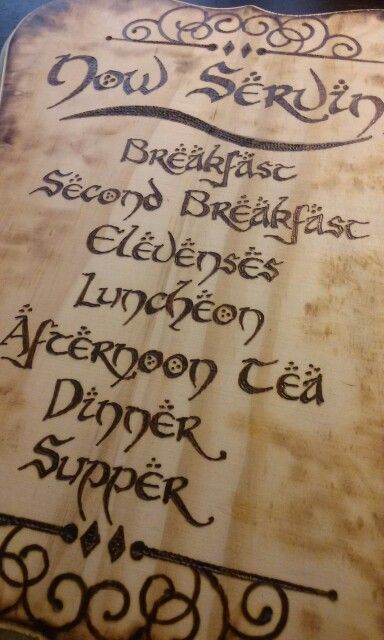 Now Servin
Breakfast
Second Breakfast
Elevenses
Luncheon
Afternoon Tea
Dinner
Supper